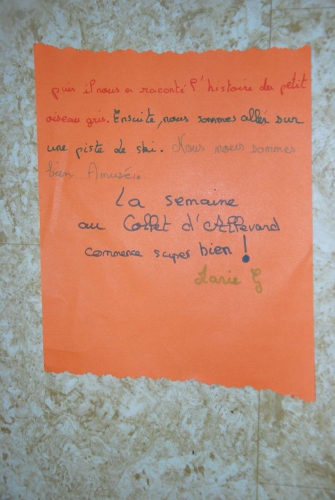 puis il nous a raconté l'histoire du petit
oiseau gris. Ensuite, nous sommes allés sur
une piste de ski. Nous nous sommes
bien Amusé.
La semaine
au Collet d'Allevard
commence super bien !
Marie G